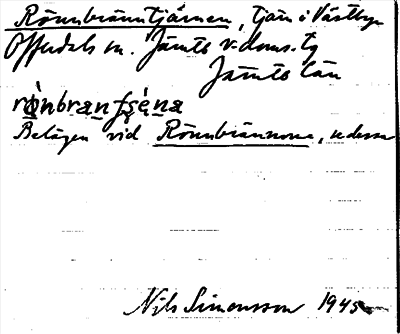 Rönnbränntjärnen, tjärn i Västbyn
Offerdals sn. Jämts v. doms. tg
Jämts län
rönbranfséna
Belägen vid Rönnbrännorna, se dessa
Nils Simonsson 1945